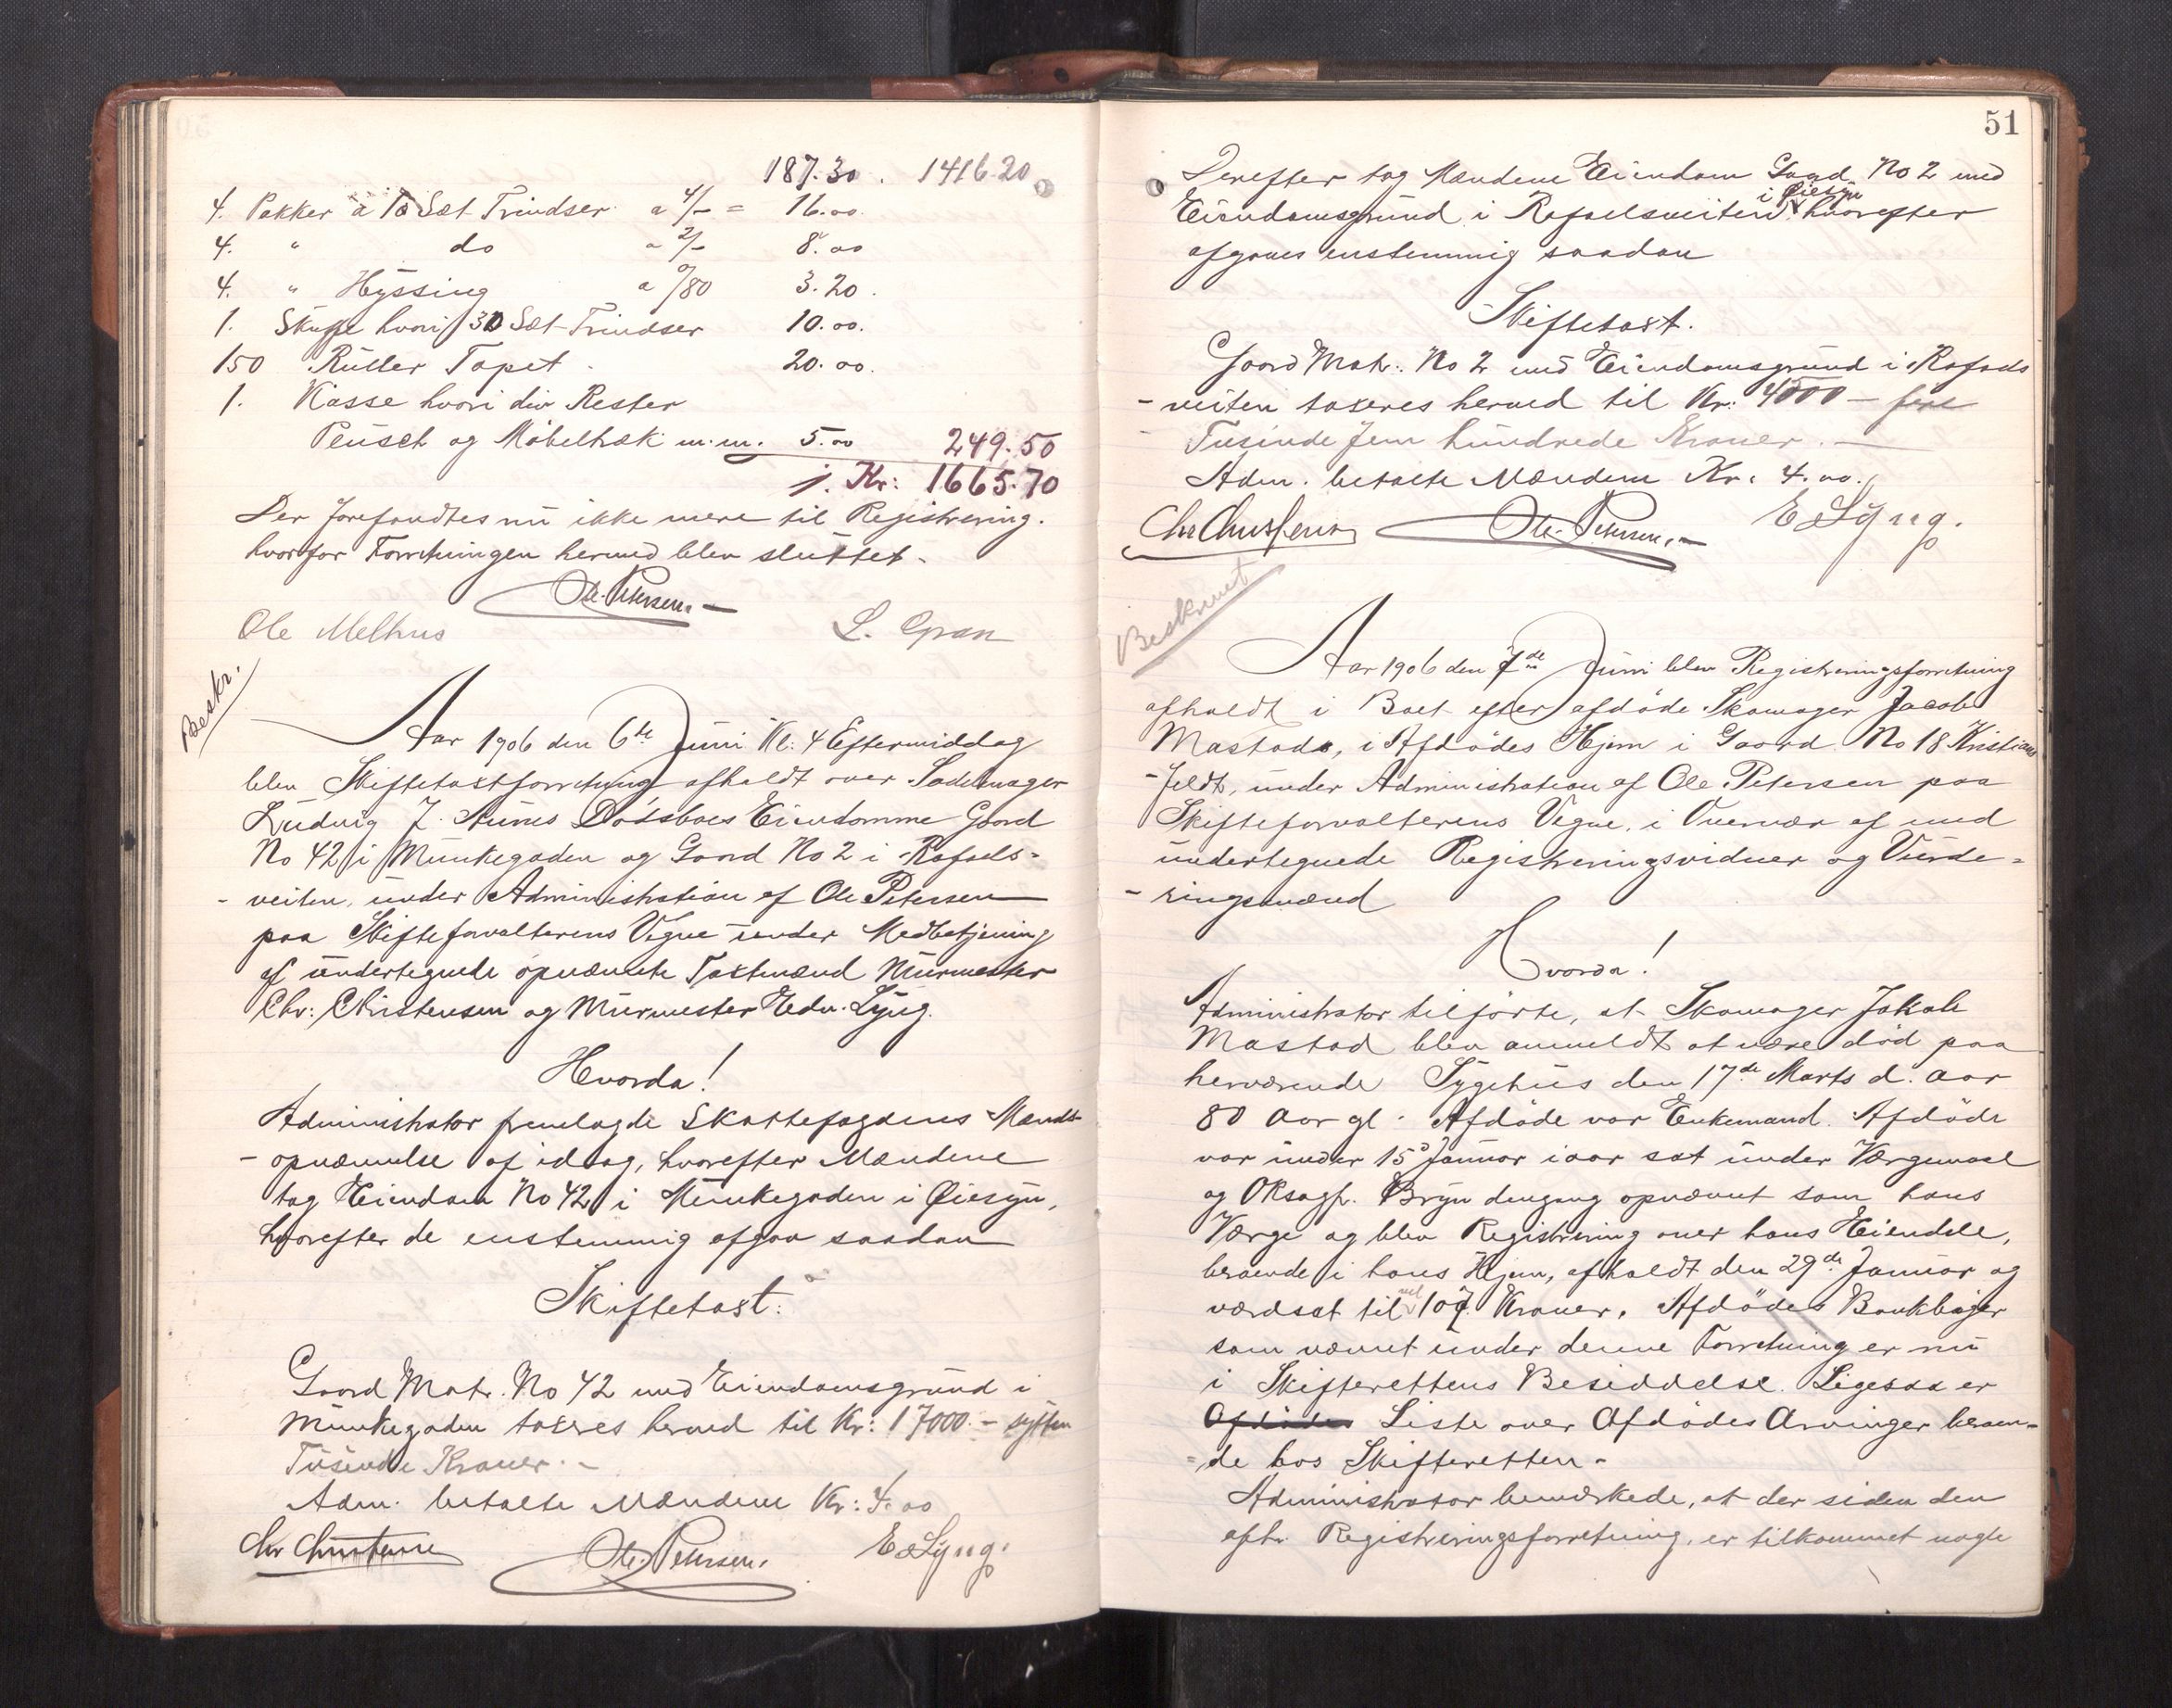 187.30. 1416.20
4. Pakker à 10 Sæt Trindser a 4/- = 16.00
4. " do a 2/- 8.00
4. " Hyssing a 0/80 3.20.
1. Skuffe hvori 30 Sæt Trindser 10.00.
150 Ruller Tapet. 20.00.
1. Kasse hvori div Rester
Plusch og Møbeltræk m.m. 5.00 249.50
Kr: 1665.70
Der forefandtes nu ikke mere til Registrering.
hvorfor Forretningen hermed blev sluttet.
Ole Petersen.
Ole Melhus L. Gran
Beskr.
Aar 1906 den 6te Juni Kl: 4 Eftermiddag
blev Skiftetaxtforretning afholdt over Sadelmager
Ludvig J. Aunes Dødsboes Eiendomme Gaard
No 42 i Munkegaden og Gaard No 2 i Rafaels-
-veiten, under Administration af Ole Petersen
paa Skifteforvalterens Vegne under Medbetjening
af undertegnede opnævnte Taxtmænd Murmester
Chr: Christensen og Murmester Edv. Lyng.
Hvorda!
Administrator fremlagde Skattefogdens Mands-
-opnævnelse af idag, hvorefter Mændene
tog Eiendom No 42 i Munkegaden i Øiesyn,
hvorefter de enstemmig afgav saadan
Skiftetaxt:
Gaard Matr. No 42 med Eiendomsgrund i
Munkegaden taxeres herved til Kr: 17000.- sytten
Tusinde Kroner.-
Adm. betalte Mændene Kr: 4.00
Chr Christensen Ole Petersen. E Lyng.
51
Derefter tog Mændene Eiendom Gaard No 2 med
i Øiesyn
Eiendomsgrund i Rafaelsveiten hvorefter
afgaves enstemmig saadan
Skiftetaxt.
Gaard Matr: No 2 med Eiendomsgrund i Rafaels
-veiten taxeres herved til Kr: 4500 - fire
Tusinde fem hundrede Kroner.-
Adm. betalte Mændene Kr. 4.00.
Chr Christensen Ole Petersen.- E Lyng.
Beskrevet
Aar 1906 den 7de Juni blev Registreringsforretning
afholdt i Boet efter afdøde Skomager Jacob
Mastad, i Afdødes Hjem i Gaard No 18 Kristians
-feldt, under Administration af Ole Petersen paa
Skifteforvalterens Vegne, i Overvær af med
undertegnede Registreringsvidner og Vurde-
-ringsmænd
Hvorda!
Administrator tilførte, at Skomager Jakob
Mastad blev anmeldt at være død paa
herværende Sygehus den 17de Marts d. Aar
80 Aar gl. Afdøde var Enkemand. Afdøde
var under 15d Januar iaar sat under Værgemaal
og OKsagf. Bryn dengang opnævnt som hans
Værge og blev Registrering over hans Eiendele,
beroende i hans Hjem, afholdt den 29de Januar og
værdsat til 107 Kroner. Afdødes Bankbøger
som nævnt under denne Forretning er nu
i Skifterettens Besiddelse. Ligesaa er
Afdødes Liste over Afdødes Arvinger beroen-
-de hos Skifteretten.
Administrator bemærkede, at der siden den
afh. Registreringsforretning, er tilkommet nogle